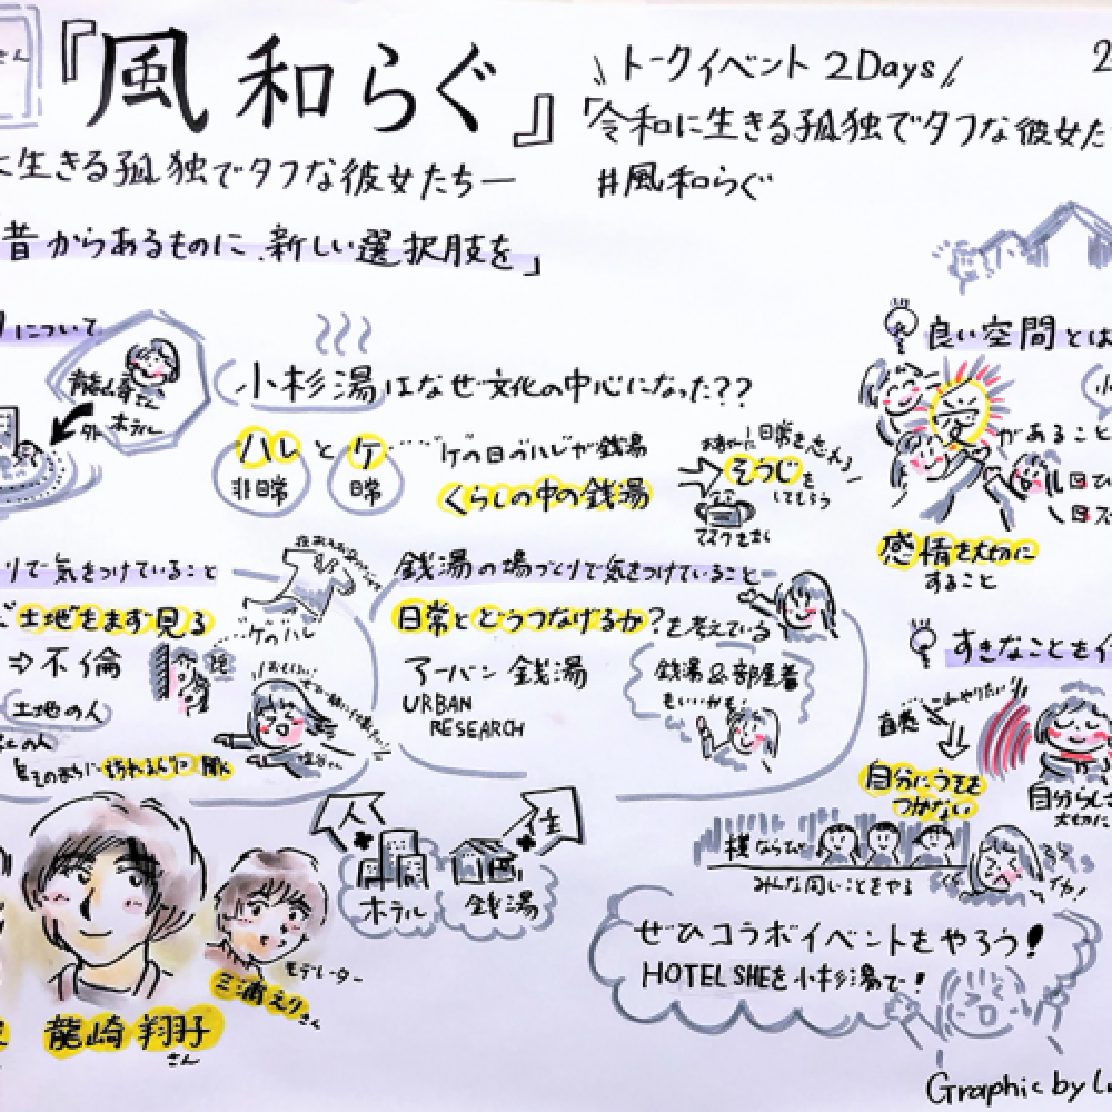 さん
『風和らぐ』
に生きる孤独でタフな彼女たちー
昔からあるものに、新しい選択肢を」
\\トークイベント 2Days//
「令和に生きる孤独でタフな彼女た
#風和らぐ
2
について
龍崎さん
外
ホテル
小杉湯はなぜ文化の中心になった??
ハレとケ
非日常
日常
ケの日のハレが銭湯
くらしの中の銭湯
日常を忘れる
そうじを
してもらう
良い空間とは
愛
があること
感情を大切に
すること
りで気をつけていること
土地をまず見る
⇒不倫
土地の人
ケのハレ
銭湯の場づくりで気をつけていること
日常とどうつなげるか?を考えている
アーバン銭湯
URBAN
RESEARCH
銭湯&部屋着
もいいかも
すきなことを
直感
これやりたい!!
自分にうそを
つかない
自分らし
大切に
横ならび
みんな同じことをやる
人
ホテル
銭湯
三浦えりさん
モデレーター
龍崎翔子
さん
ぜひコラボイベントをやろう!
HOTEL SHEを小杉湯で!
Graphic by